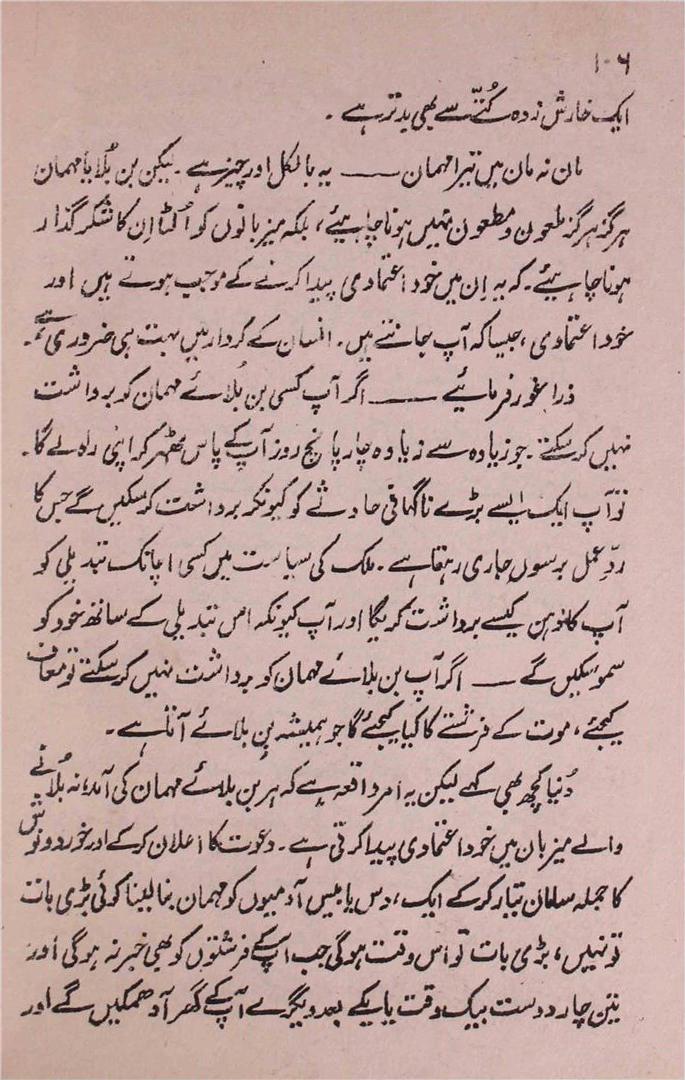 ۱۰۶
ایک خارش زدہ کُتّے سے بھی بدتر ہے ۔
مان نہ مان میں تیرا مہمان —— یہ بالکل اور چیز ہے ۔ لیکن بن بُلایا مہمان
ہرگز ہرگز طعون و مطعون نہیں ہونا چاہیئے ، بلکہ میزبانوں کو اُلٹا اِن کا شکر گذار
ہونا چاہیئے ۔ کہ یہ اِن میں خود اعتمادی پیدا کرنے کے موجب ہوتے ہیں اور
خود اعتمادی ، جیسا کہ آپ جانتے ہیں ۔ انسان کے کردار میں بہت ہی ضروری ہے ۔
ذرا غور فرمائیے —— اگر آپ کسی بن بُلائے مہمان کو برداشت
نہیں کر سکتے ۔ جو زیادہ سے زیادہ چار پانچ روز آپ کے پاس ٹھہر کر اپنی راہ لے گا ۔
تو آپ ایک ایسے بڑے ناگہانی حادثے کو کیونکر برداشت کر سکیں گے جس کا
ردِّ عمل برسوں جاری رہتا ہے ۔ ملک کی سیاست میں کسی اچانک تبدیلی کو
آپ کا ذہن کیسے برداشت کریگا اور آپ کیونکہ اس تبدیلی کے ساتھ خود کو
سمو سکیں گے —— اگر آپ بن بلائے مہمان کو برداشت نہیں کر سکتے تو معاف
کیجئے ، موت کے فرشتے کا کیا کیجئے گا جو ہمیشہ بن بلائے آتا ہے ۔
دُنیا کچھ بھی کہے لیکن یہ امر واقعہ ہے کہ ہر بن بلائے مہمان کی آمد ، نہ بُلانے
والے میزبان میں خود اعتمادی پیدا کرتی ہے ۔ دعوت کا اعلان کر کے اور خورد و نوش
کا جملہ سامان تیار کر کے ایک ، دس یا بیس آدمیوں کو مہمان بنا لینا کوئی بڑی بات
تو نہیں ، بڑی بات تو اس وقت ہو گی جب آپ کے فرشتوں کو بھی خبر نہ ہو گی اور
تین چار دوست بیک وقت یا یکے بعد دیگرے آپ کے گھر آ دھمکیں گے اور